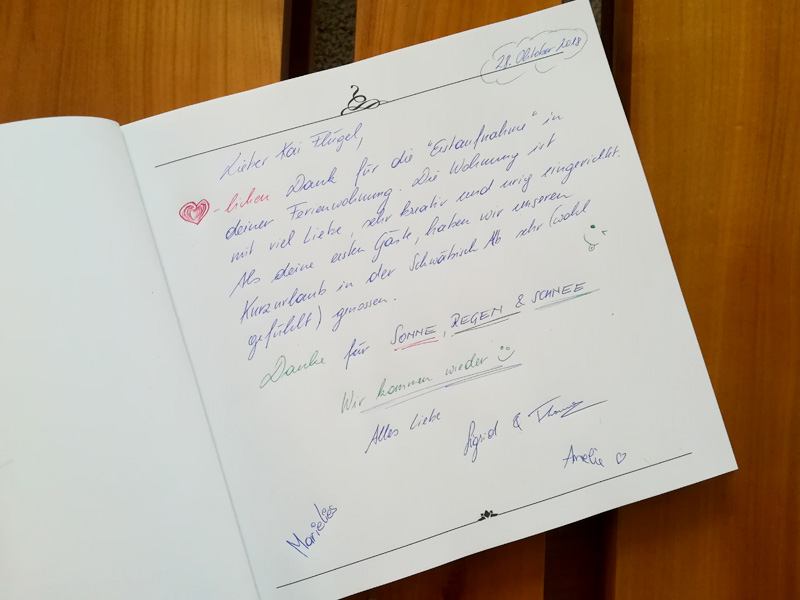 28. Oktober 2018
Lieber Kai Flügel,
-lichen Dank für die "Erstaufnahme" in
deiner Ferienwohnung. Die Wohnung ist
mit viel Liebe, sehr kreativ und urig eingerichtet.
Als deine ersten Gäste, haben wir unseren
Kurzurlaub in der Schwäbisch Alb sehr (wohl
gefühlt) genossen.
Danke für SONNE, REGEN & SCHNEE
Wir kommen wieder
Alles Liebe
Sigrid &
Amelie
Marielies